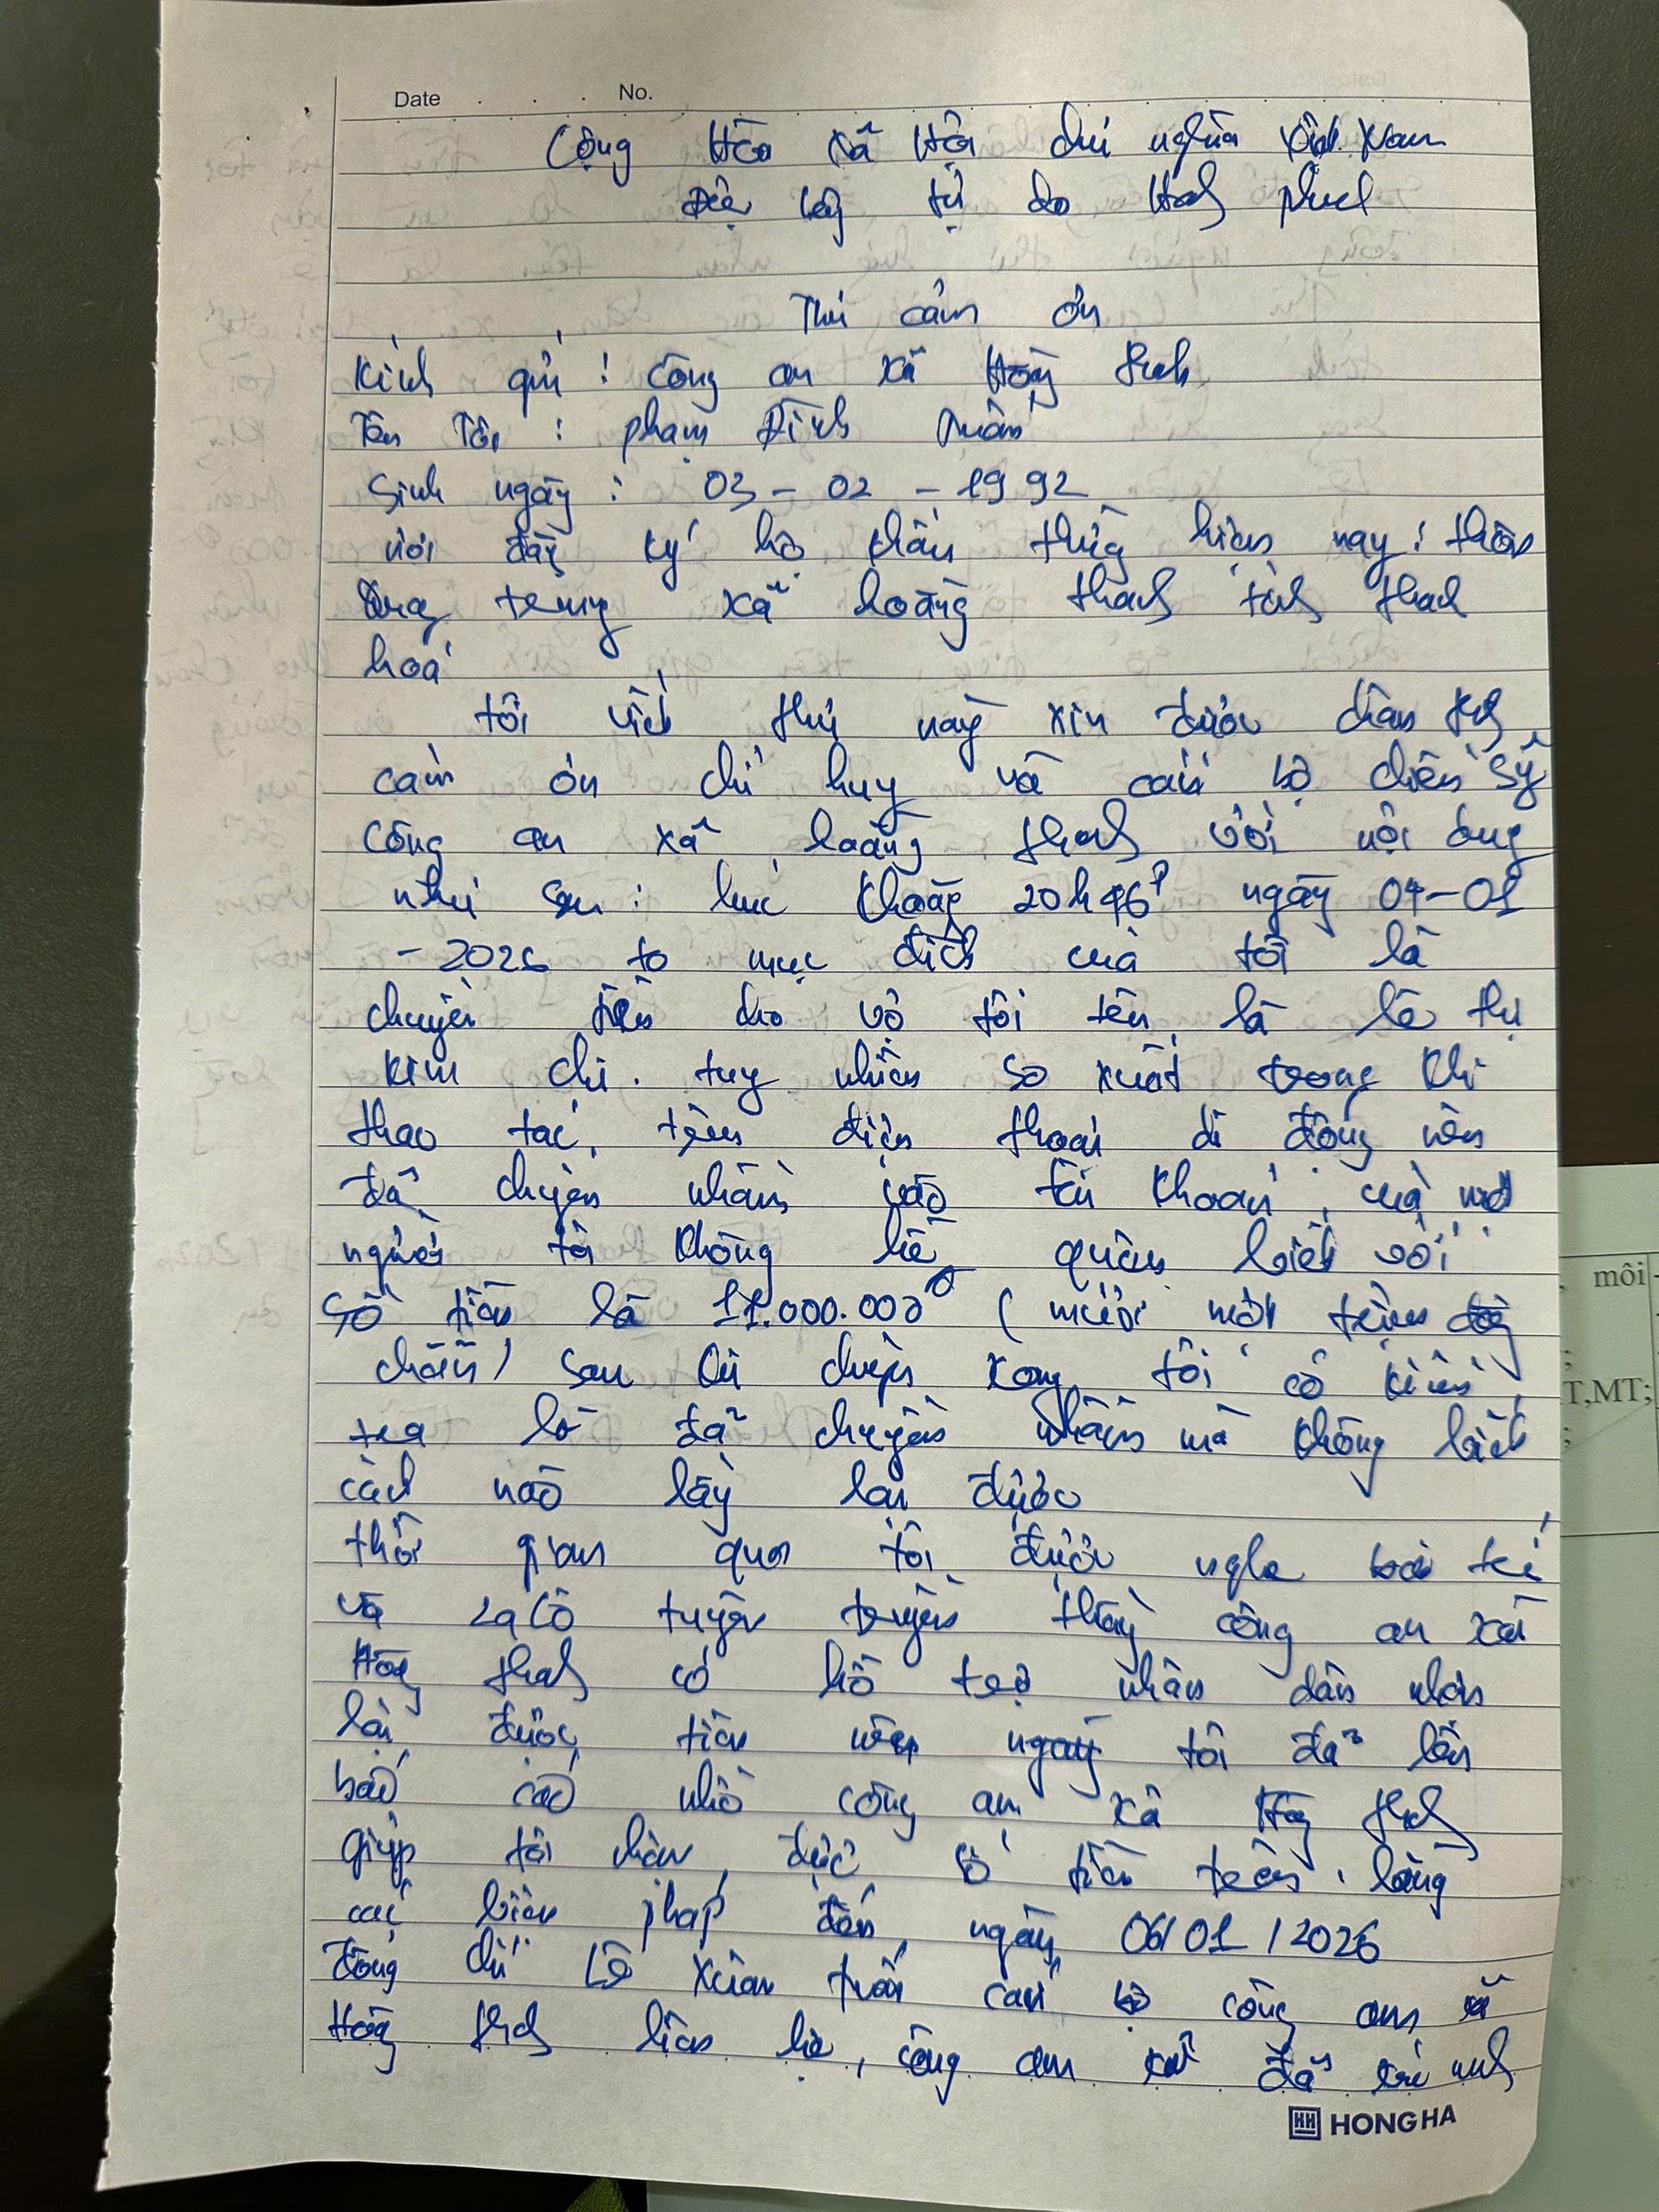 Date . . . No.
Cộng Hòa Xã Hội chủ nghĩa Việt Nam
Độc lập tự do Hạnh phúc
Thư cảm ơn
Kính gửi : Công an xã Hoằng thanh
Tên Tôi : phạm Đình
Sinh ngày : 03 - 02 - 1992
nơi đăng ký hộ khẩu thường hiện nay : thôn
trung xã hoằng thanh tỉnh thanh
hoá
tôi viết thư này xin được chân thành
cảm ơn chỉ huy và cán bộ chiến sỹ
công an xã hoằng thanh với nội dung
như sau : lúc khoảng 20h46p ngày 04-01
- 2026 mục đích của tôi là
chuyển tiền cho vợ tôi tên là lê thị
kim chi . tuy nhiên sơ xuất trong khi
thao tác trên điện thoại di động nên
đã chuyển nhầm vào tài khoản của một
người tôi không hề quen biết với
số tiền là 11.000.000đ ( mười một triệu đồng
chẵn) sau khi chuyển xong tôi có kiểm
tra là đã chuyển nhầm mà không biết
cách nào lấy lại được
thời gian qua tôi được nghe
và zalo tuyên truyền thấy công an xã
Hoằng thanh có hỗ trợ nhân dân nhận
lại được tiền nên ngay tôi đã lên
báo cáo nhờ công an xã Hoằng thanh
giúp tôi nhận được số tiền trên . bằng
các biện pháp đến ngày 06/01/2026
đồng chí Lê Xuân cán bộ công an xã
Hoằng thanh liên hệ , công an xã đã xác minh
HH HONG HA
môi
T,MT;